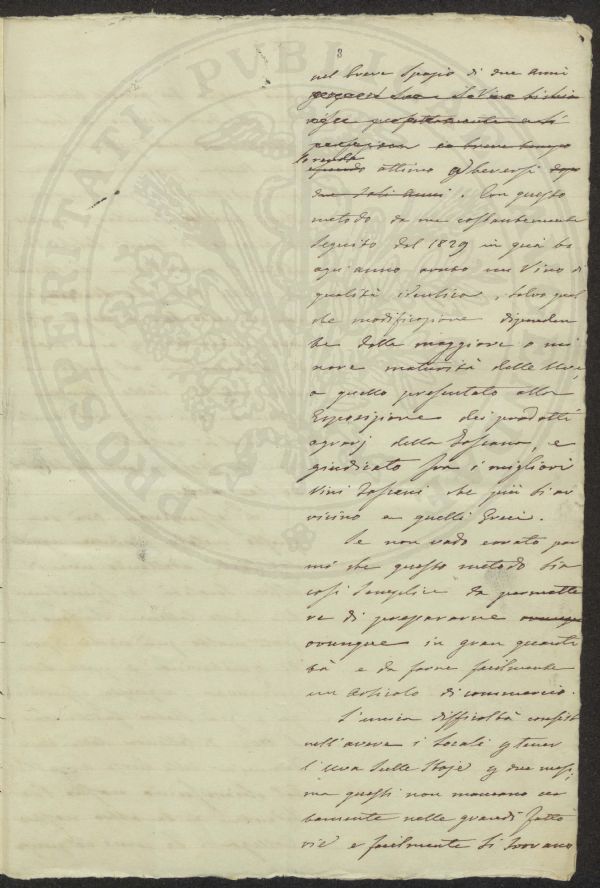 PROSPERITATI PUBLICAE
8
nel breve spazio di due anni
si
perfezion in breve tempo
lo rende
ottimo p beversi dopo
due soli anni. Con questo
metodo da me costantemente
seguito dal 1829 in quà ho
ogni anno avuto un Vino di
qualità identica, salvo qual
che modificazione dipenden
te dalla maggiore o mi
nore maturità delle Uve,
a quello presentato alla
Esposizione dei prodotti
agrarj della Toscana, e
giudicato fra i migliori
Vini Toscani che più si av
vicino a quelli Greci.
Se non vado errato par
mi che questo metodo sia
così semplice da permette
re di prepararne
ovunque in gran quanti
tà e da farne facilmente
un articolo di commercio.
L'unica difficoltà consiste
nell'avere i locali p tener
l'uva sulle stoje p due mesi,
ma questi non mancano cer
tamente nelle grandi fatto
rie e facilmente si trovano